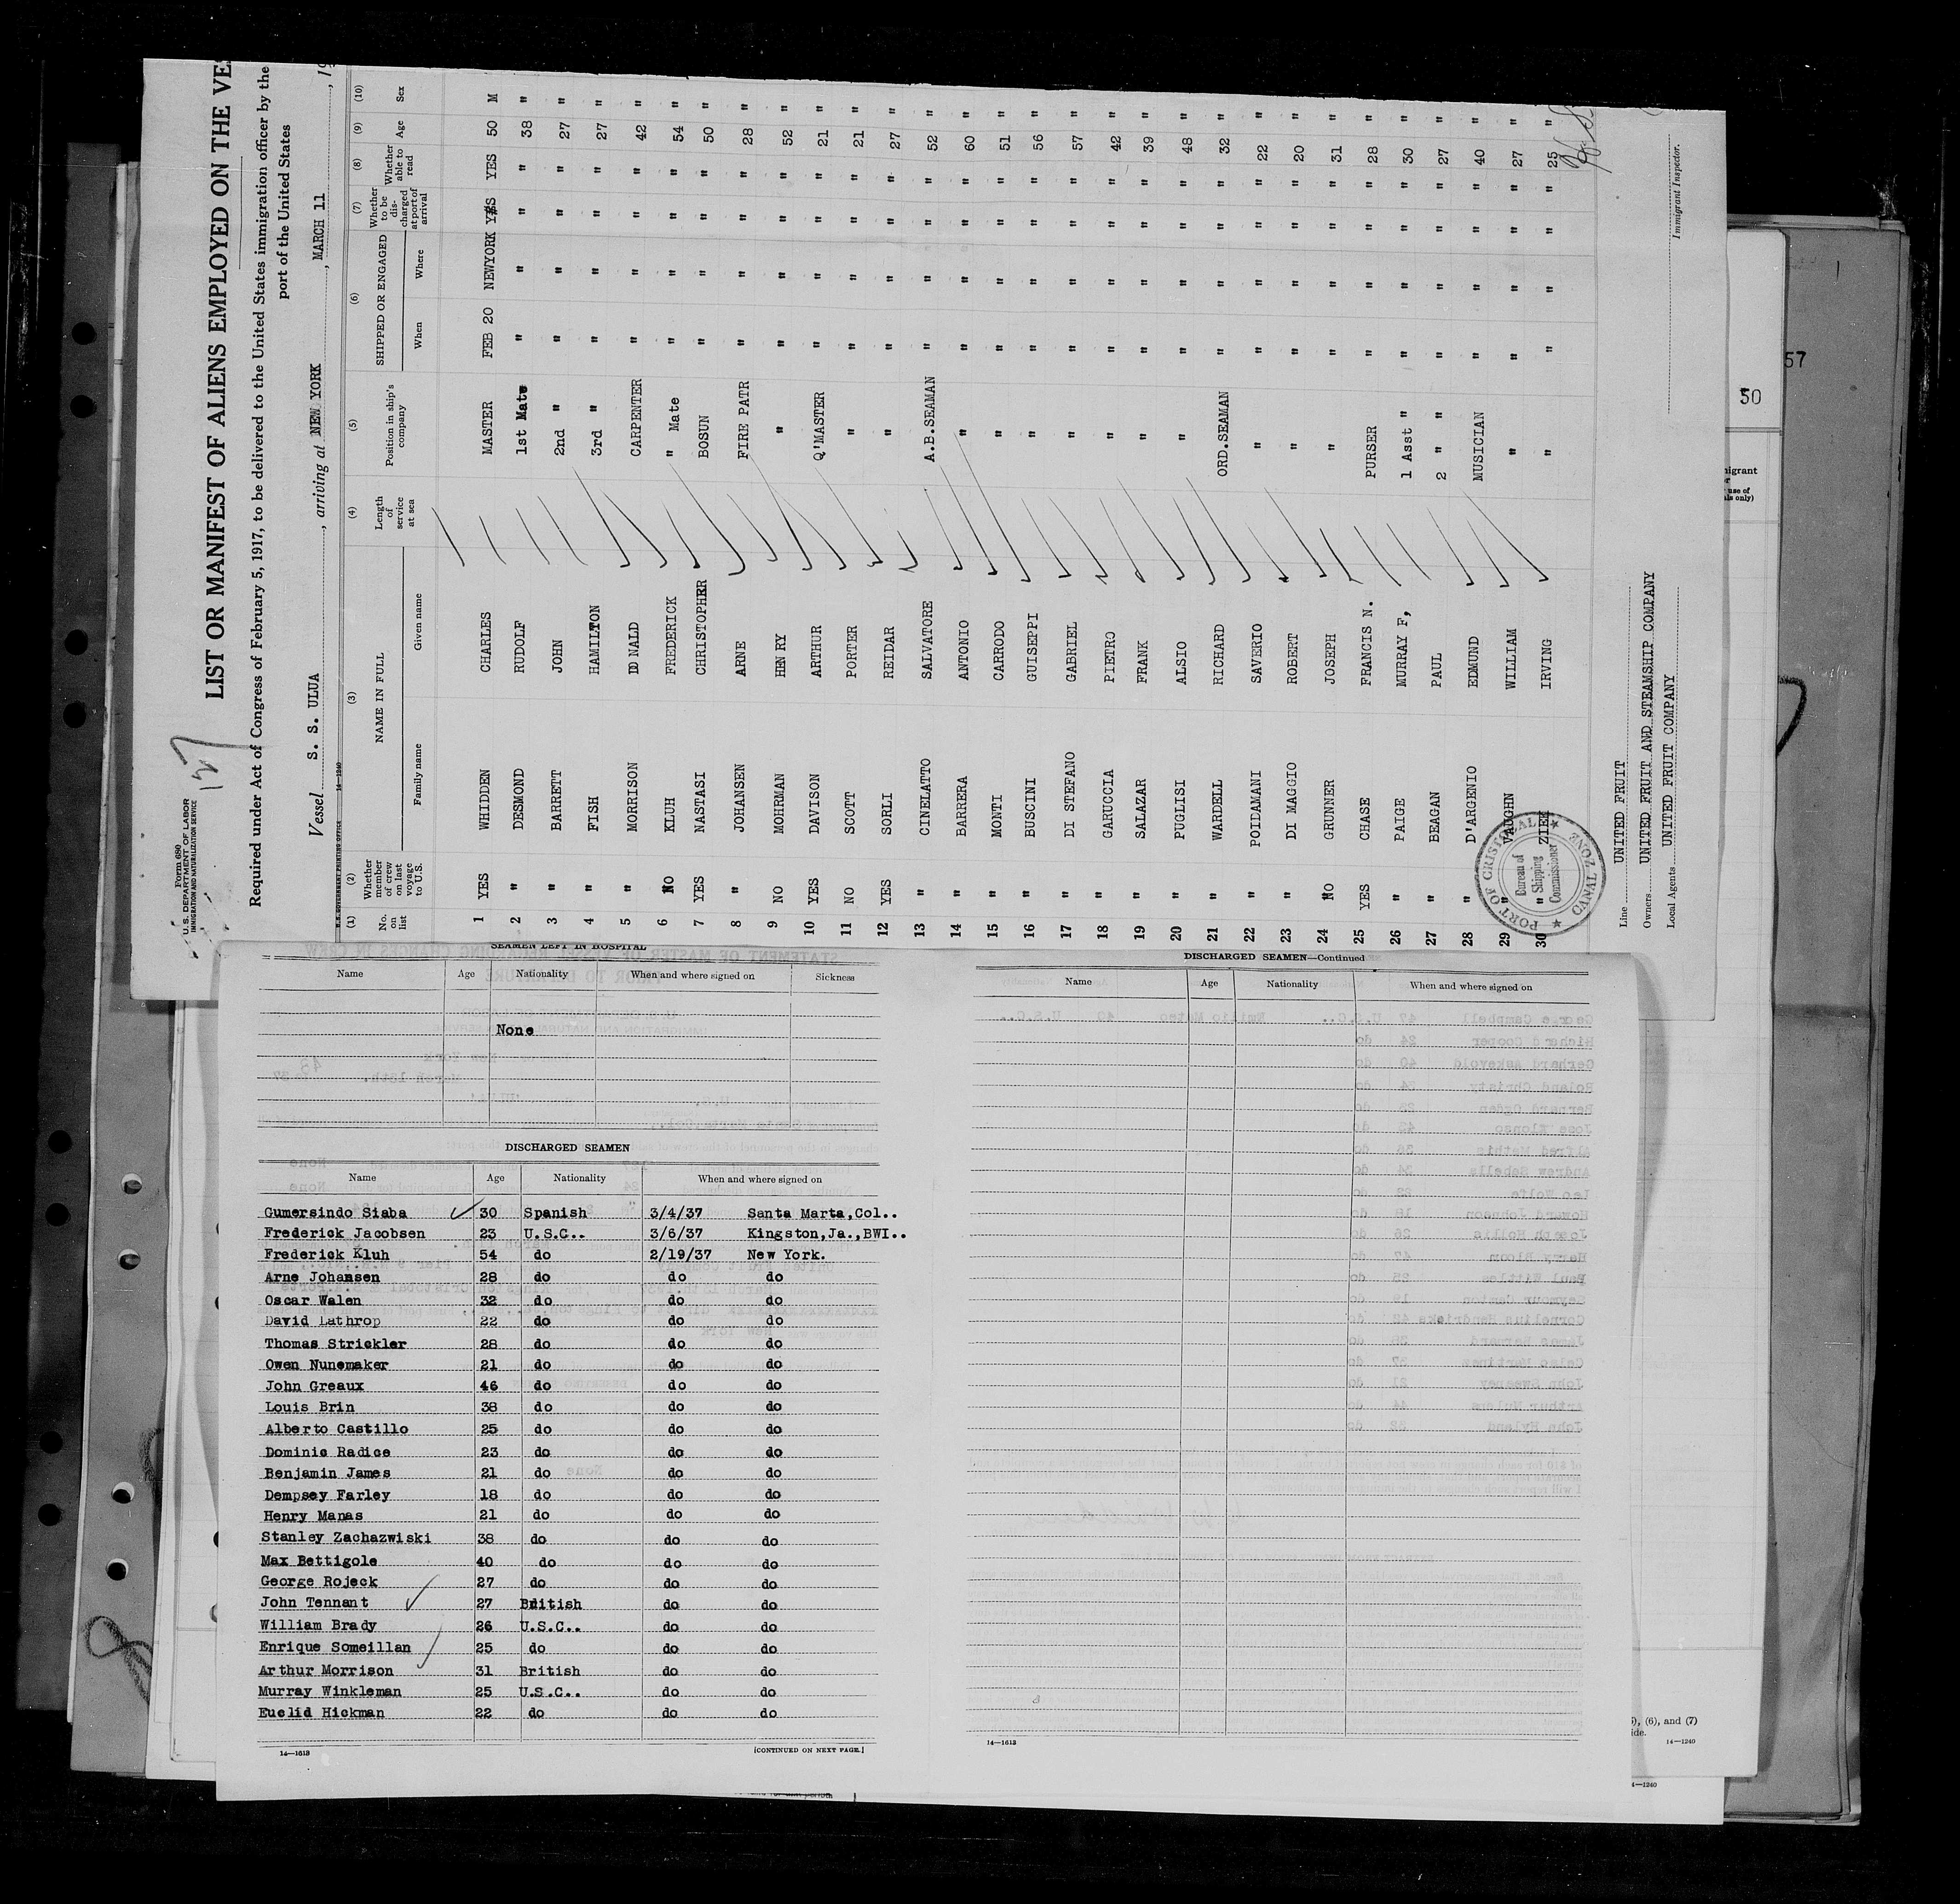 Form 680
U. S. DEPARTMENT OF LABOR
IMMIGRATION AND NATURALIZATION SERVICE
LIST OR MANIFEST OF ALIENS EMPLOYED ON THE
Required under Act of Congress of February 5, 1917, to be delivered to the United States immigration officer by the
port of the United States
Vessel S. S. ULUA, arriving at NEW YORK, MARCH 11, 19
U.S. GOVERNMENT PRINTING OFFICE 14—1240
(1) (2) (3) (4) (5) (6) (7) (8) (9) (10)
No. on list Whether member of crew on last voyage to U.S. NAME IN FULL Family name Given name Length of service at sea Position in ship's company SHIPPED OR ENGAGED When Where Whether to be discharged at port of arrival Whether able to read Age Sex
1 YES WHIDDEN CHARLES MASTER FEB 20 NEWYORK YES YES 50 M
2 " DESMOND RUDOLF 1st Mate " " " " 38 "
3 " BARRETT JOHN 2nd " " " " " 27 "
4 " FISH HAMILTON 3rd " " " " " 27 "
5 " MORRISON DONALD CARPENTER " " " " 42 "
6 NO KLUH FREDERICK " Mate " " " " 54 "
7 YES NASTASI CHRISTOPHER BOSUN " " " " 50 "
8 " JOHANSEN ARNE FIRE PATR " " " " 28 "
9 NO MOHRMAN HENRY " " " " " 52 "
10 YES DAVISON ARTHUR Q'MASTER " " " " 21 "
11 NO SCOTT PORTER " " " " " 21 "
12 YES SORLI REIDAR " " " " " 27 "
13 " CINELATTO SALVATORE A.B.SEAMAN " " " " 52 "
14 " BARRERA ANTONIO " " " " " 60 "
15 " MONTI CARRODO " " " " " 51 "
16 " BUSCINI GUISEPPI " " " " " 56 "
17 " DI STEFANO GABRIEL " " " " " 57 "
18 " GARUCCIA PIETRO " " " " " 42 "
19 " SALAZAR FRANK " " " " " 39 "
20 " PUGLISI ALSIO " " " " " 48 "
21 " WARDELL RICHARD ORD.SEAMAN " " " " 32 "
22 " POIDAMANI SAVERIO " " " " " 22 "
23 " DI MAGGIO ROBERT " " " " " 20 "
24 NO GRUNNER JOSEPH " " " " " 31 "
25 YES CHASE FRANCIS N. PURSER " " " " 28 "
26 " PAIGE MURRAY F, 1 Asst " " " " " 30 "
27 " BEAGAN PAUL 2 " " " " " " 27 "
28 " D'ARGENIO EDMUND MUSICIAN " " " " 40 "
29 " VAUGHN WILLIAM " " " " " 27 "
30 " ZIEK IRVING " " " " " 25 "
PORT OF CRISTOBAL CANAL ZONE
Bureau of Shipping Commissioner
Line UNITED FRUIT
Owners UNITED FRUIT AND STEAMSHIP COMPANY
Local Agents UNITED FRUIT COMPANY
Immigrant Inspector.
57
50
SEAMEN LEFT IN HOSPITAL
Name Age Nationality When and where signed on Sickness
None
DISCHARGED SEAMEN
Name Age Nationality When and where signed on
Gumersindo Siaba 30 Spanish 3/4/37 Santa Marta,Col..
Frederick Jacobsen 23 U.S.C.. 3/6/37 Kingston,Ja.,BWI..
Frederick Kluh 54 do 2/19/37 New York.
Arne Johansen 28 do do do
Oscar Walen 32 do do do
David Lathrop 22 do do do
Thomas Strickler 28 do do do
Owen Nunemaker 21 do do do
John Greaux 46 do do do
Louis Brin 38 do do do
Alberto Castillo 25 do do do
Dominic Radice 23 do do do
Benjamin James 21 do do do
Dempsey Farley 18 do do do
Henry Manas 21 do do do
Stanley Zachazwiski 38 do do do
Max Bettigole 40 do do do
George Rojeck 27 do do do
John Tennant 27 British do do
William Brady 26 U.S.C.. do do
Enrique Someillan 25 do do do
Arthur Morrison 31 British do do
Murray Winkleman 25 U.S.C.. do do
Euclid Hickman 22 do do do
14—1613 [CONTINUED ON NEXT PAGE.]
DISCHARGED SEAMEN—Continued
Name Age Nationality When and where signed on
14—1613
(6), and (7)
14—1240